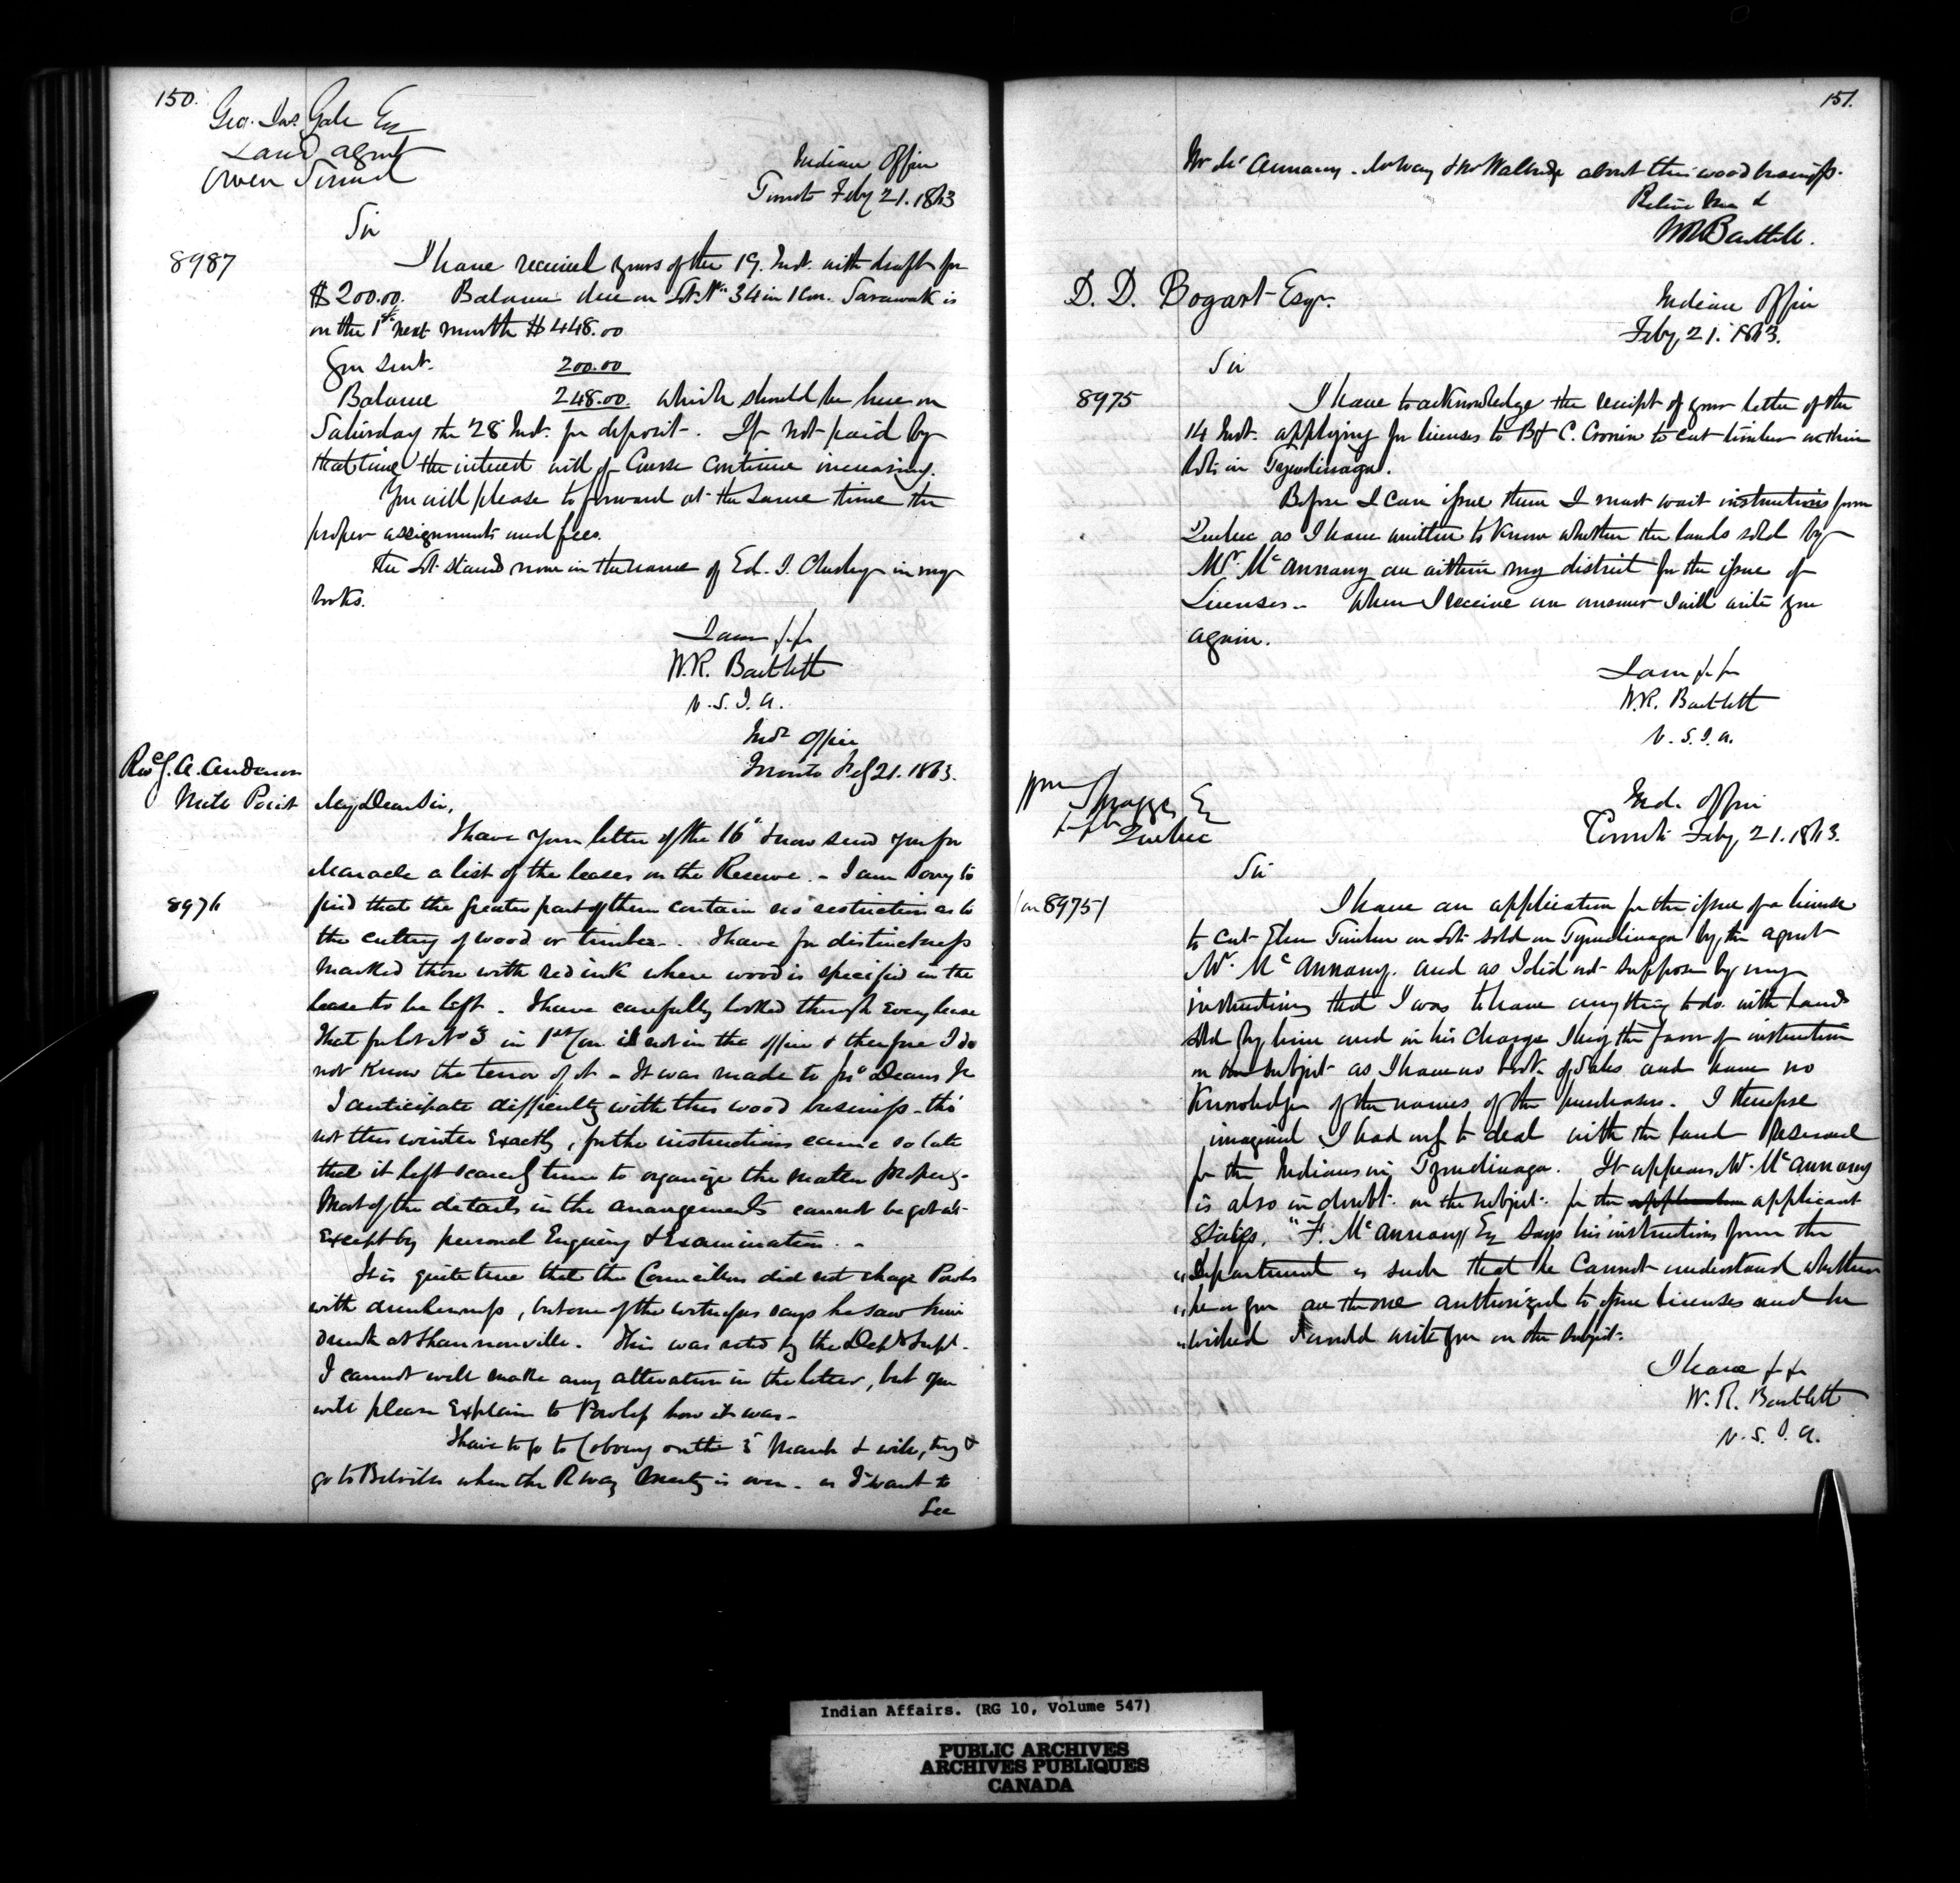 150.
Geo. Jas. Gale Esq
Land agent
Owen Sound
Indian Office
Toronto Feby 21. 1863
Sir
8987
I have received yours of the 19. Inst. with draft for
$200.00. Balance due on Lot No 34 in 1 Con. Sarawak is
on the 1st next month $448.00
You sent. 200.00
Balance 248.00. which should be here on
Saturday the 28 Inst. for deposit. If not paid by
that time the interest will of Course continue increasing.
You will please to forward at the same time the
proper assignments and fees.
The Lot stands now in the name of Ed. I. in my
books.
I am &.&.
W.R. Bartlett
V.S.I.A.
Indn Office
Toronto Feby 21. 1863.
Revd. A. Anderson
Mill Point
My Dear Sir,
8976
I have your letter of the 16th & now send you for
Maracle a list of the leases on the Reserve. - I am sorry to
find that the greater part of them contain no restriction as to
the cutting of wood or timber. - I have for distinctness
marked those with red ink where wood is specified in the
lease to be left. I have carefully looked through every lease
That for Lot No 3 in 1st Con is not in the office & therefore I do
not know the tenor of it - It was made to Jno Deans Jr
I anticipate difficulty with this wood business - tho'
not this winter exactly, for the instructions came so late
that it left scarcely time to organize the matter properly.
Most of the details in the arrangements cannot be got at
except by personal Enquiry & Examination. -
It is quite true that the Councillors did not charge Powles
with drunkenness, but one of the witnesses says he saw him
drunk at Shannonville. This was noted by the Depy Supt.
I cannot well make any alteration in the letter, but you
will please explain to Powless how it was -
I have to go to Cobourg on the 3 March & will, try &
go to Belville when the R way meeting is over - as I want to
See
151.
Mr McAnnany. & Mr Walbridge about this wood business.
Believe me &
WRBartlett.
D. D. Bogart Esqr.
Indian Office
Feby, 21. 1863.
Sir
8975
I have to acknowledge the receipt of your letter of the
14 Inst. applying for licenses to B & C. Cronin to cut timber on their
lots in Tyendinaga.
Before I can issue them I must wait instructions from
Quebec as I have written to know whether the lands sold by
Mr. McAnnany are within my district for the issue of
Licenses. - When I receive an answer I will write you
again.
I am &.&.
W.R. Bartlett
V.S.I.A.
Wm Spragge Esq
&c &c
Quebec
Ind. Office
Toronto Feby, 21. 1863.
Sir
(on 8975)
I have an application for the issue of a license
to cut Elm Timber on Lots sold in Tyendinaga by, the agent
Mr. McAnnany. and as I did not suppose by my
instructions that I was to have anything to do with lands
sold by him and in his charge I beg the favor of instruction
on the subject as I have no book of Sales and have no
Knowledge of the names of the purchasers. I therefore
imagined I had only to deal with the land Reserved
for the Indians in Tyendinaga. It appears Mr. McAnnany
is also in doubt on the subject. for the application applicant
States. "F. McAnnany Esq says his instructions from the
"department is such that he Cannot understand whether
"he or you are the one authorized to issue licenses and he
"wished I would write you on the subject.
I have &.&.
W. R. Bartlett
V.S.I.A.
Indian Affairs. (RG 10, Volume 547)
PUBLIC ARCHIVES
ARCHIVES PUBLIQUES
CANADA